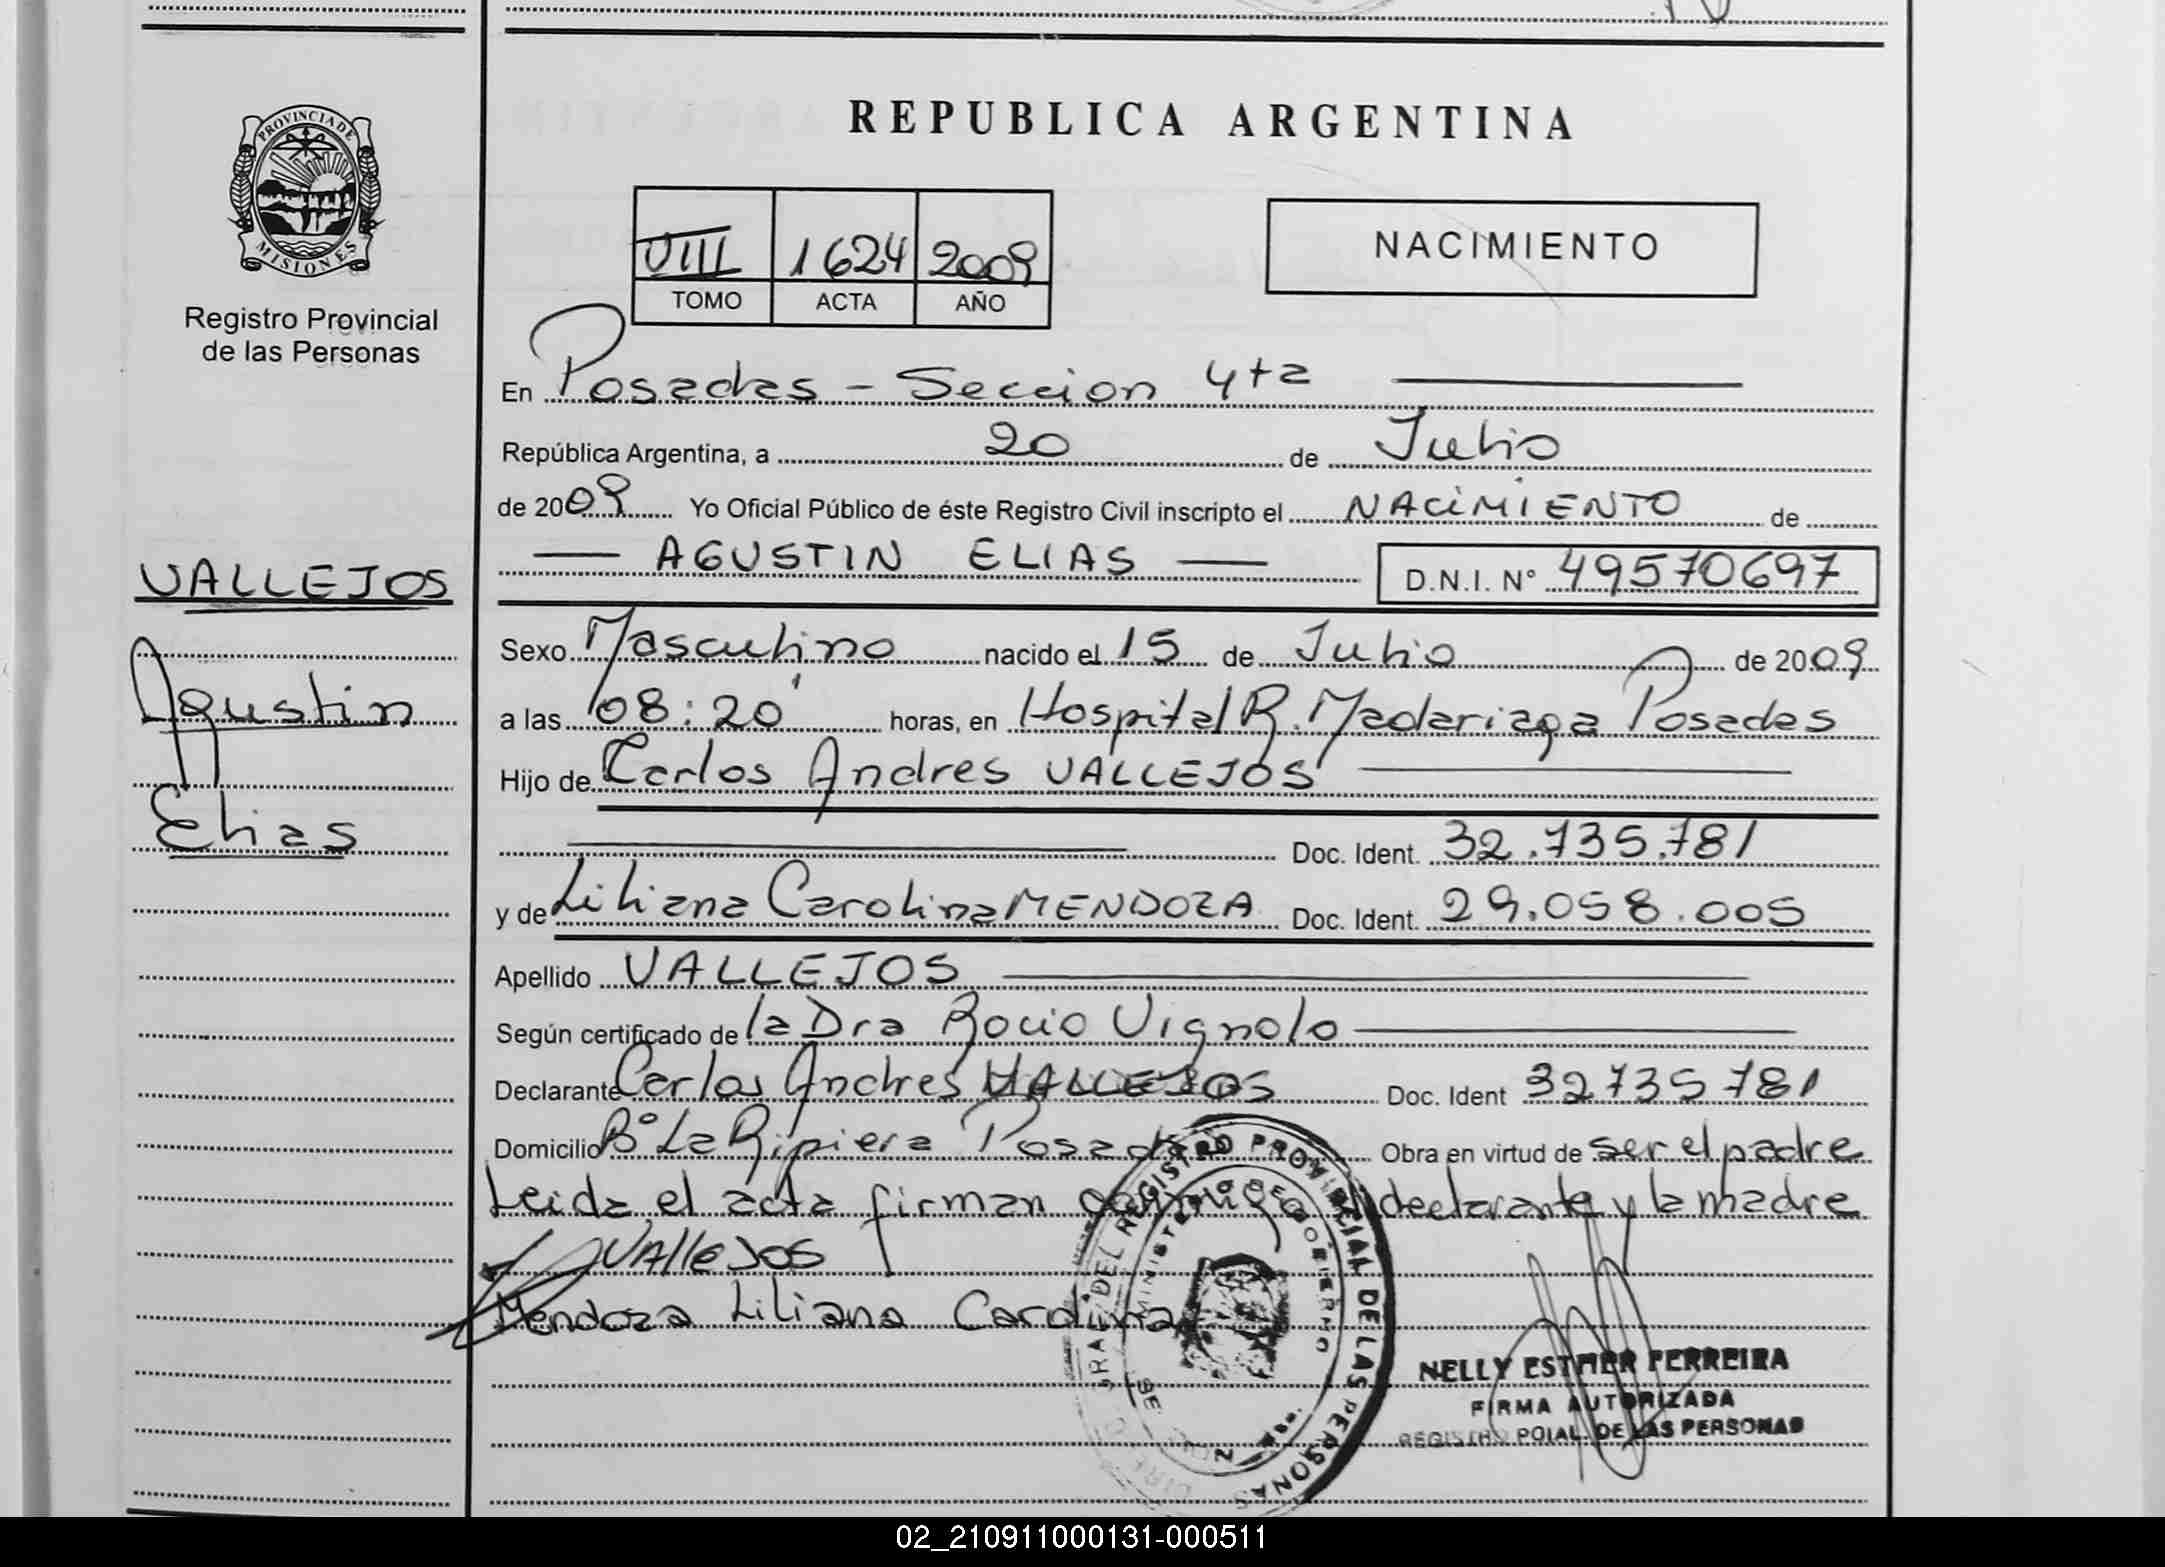 PROVINCIA DE
MISIONES
Registro Provincial
de las Personas
VALLEJOS
Agustin
Elias
REPUBLICA ARGENTINA
VIII 1624 2009
TOMO ACTA AÑO
NACIMIENTO
En Posadas - Seccion 4ta
República Argentina, a 20 de Julio
de 2009 Yo Oficial Público de éste Registro Civil inscripto el NACIMIENTO de
AGUSTIN ELIAS D.N.I. N° 49570697
Sexo Masculino nacido el 15 de Julio de 2009
a las 08:20' horas, en Hospital R. Madariaga Posadas
Hijo de Carlos Andres VALLEJOS
Doc. Ident. 32.735.781
y de Liliana Carolina MENDOZA Doc. Ident. 29.058.005
Apellido VALLEJOS
Según certificado de la Dra Rocio Vignolo
Declarante Carlos Andres VALLEJOS Doc. Ident 32735781
Domicilio B° La Ripiera Posadas Obra en virtud de ser el padre
Leida el acta firman conmigo el declarante y la madre
VAlleJos
Mendoza Liliana Carolina
REGISTRO PROVINCIAL DE LAS PERSONAS
MINISTERIO DE GOBIERNO
NELLY ESTHER FERREIRA
FIRMA AUTORIZADA
REGISTRO PCIAL. DE LAS PERSONAS
02_210911000131-000511